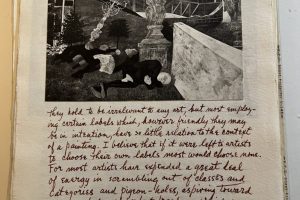 they hold to be irrelevant to any art, but most employ-
ing certain labels which, however friendly they may
be in intention, have so little relation to the content
of a painting. I believe that if it were left to artists
to choose their own labels most would choose none.
For most artists have expended a great deal
of energy in scrambling out of classes and
categories and pigeon-holes, aspiring toward